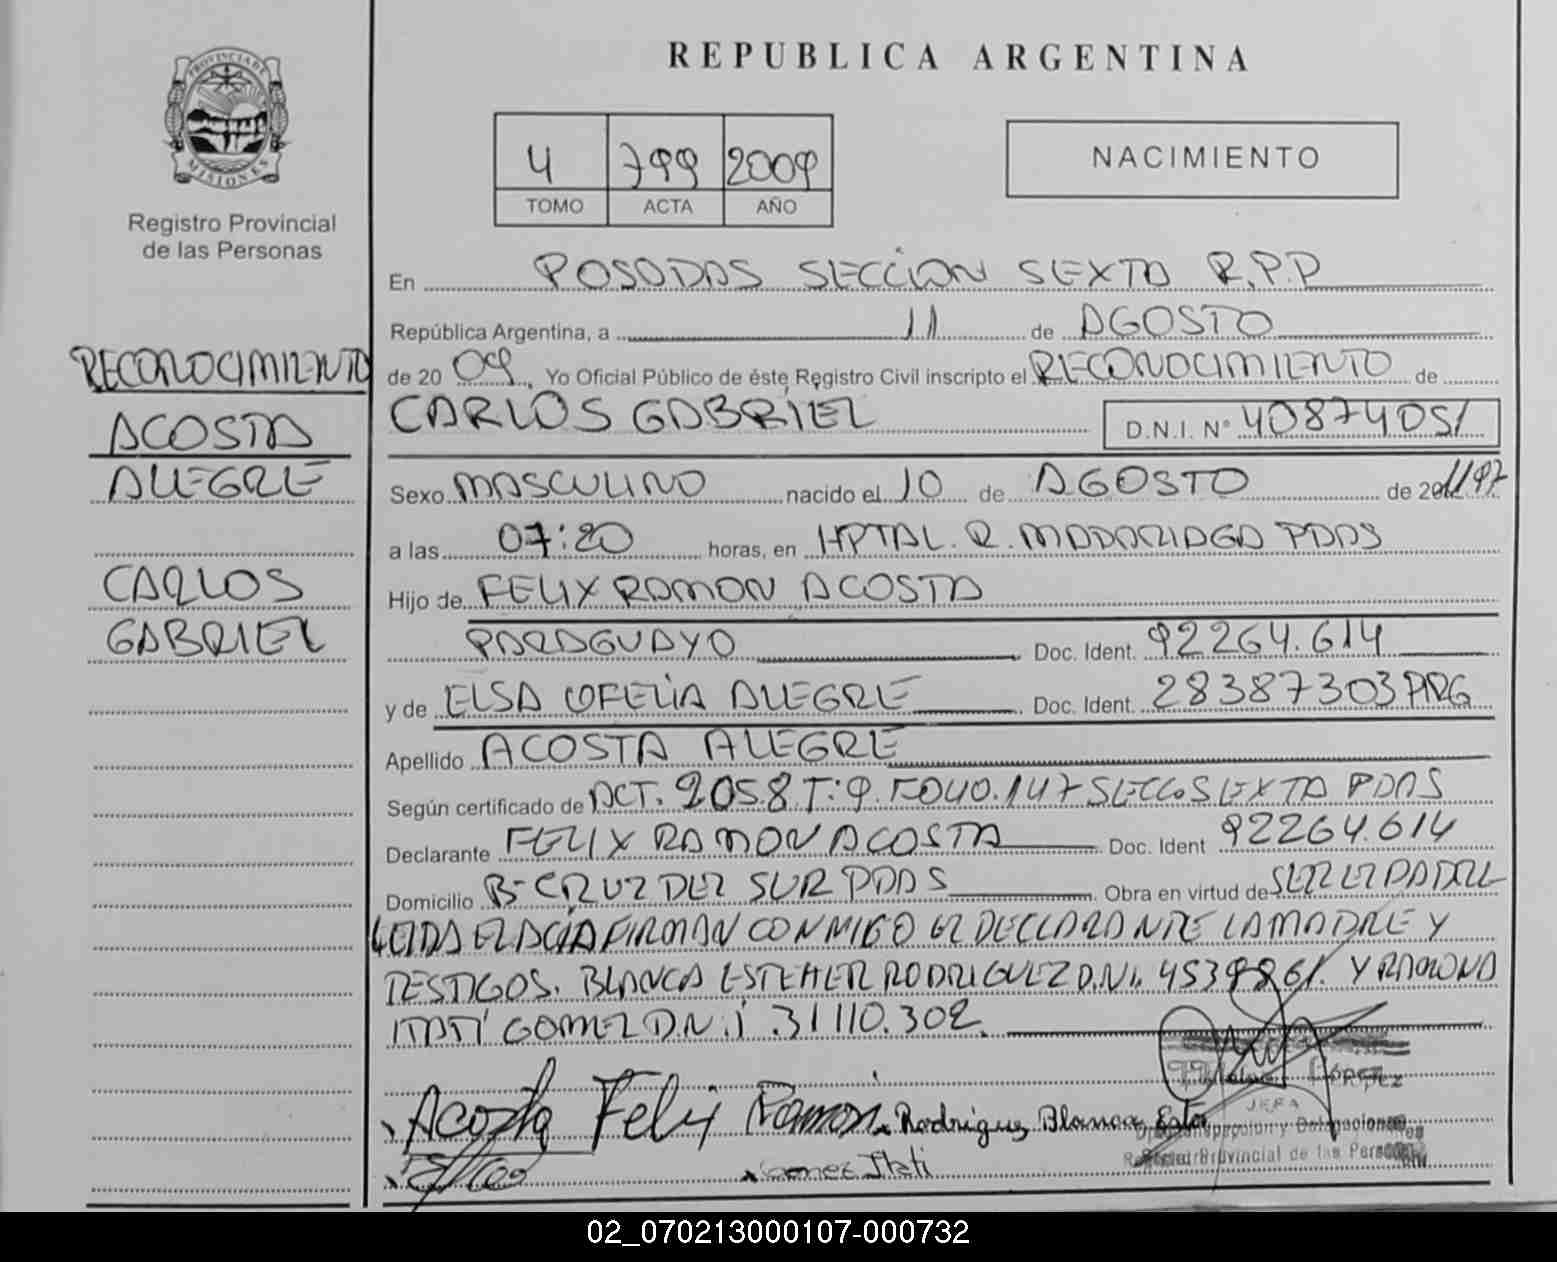 PROVINCIA DE
MISIONES
Registro Provincial
de las Personas
REPUBLICA ARGENTINA
4 799 2009
TOMO ACTA AÑO
NACIMIENTO
En POSADAS SECCION SEXTA R.P.P
República Argentina, a 11 de AGOSTO
de 20 09, Yo Oficial Público de éste Registro Civil inscripto el RECONOCIMIENTO de
CARLOS GABRIEL D.N.I. N° 40874051
Sexo MASCULINO nacido el 10 de AGOSTO de 20 1197
a las 07:20 horas, en HPTAL. R. MADARIAGA PDAS
Hijo de FELIX RAMON ACOSTA
PARAGUAYO Doc. Ident. 92264.614
y de ELSA OFELIA ALEGRE Doc. Ident. 28387303 PRG
Apellido ACOSTA ALEGRE
Según certificado de ACT. 2058 T: 9. FOLIO. 147 SECC. SEXTA PDAS
Declarante FELIX RAMON ACOSTA Doc. Ident 92264.614
Domicilio B- CRUZ DEL SUR PDAS Obra en virtud de SER EL PADRE
LEIDA EL ACTA FIRMAN CONMIGO EL DECLARANTE LA MADRE Y
TESTIGOS. BLANCA ESTEHER RODRIGUEZ D.N.I. 4539861. Y RAMONA
ITATÍ GOMEZ D.N.I 31110.302.
Acosta Felix Ramon Rodriguez Blanca Ester
Gomez Itati
López
JEFA
Registro Provincial de las Personas
RECONOCIMIENTO
ACOSTA
ALEGRE
CARLOS
GABRIEL
02_070213000107-000732